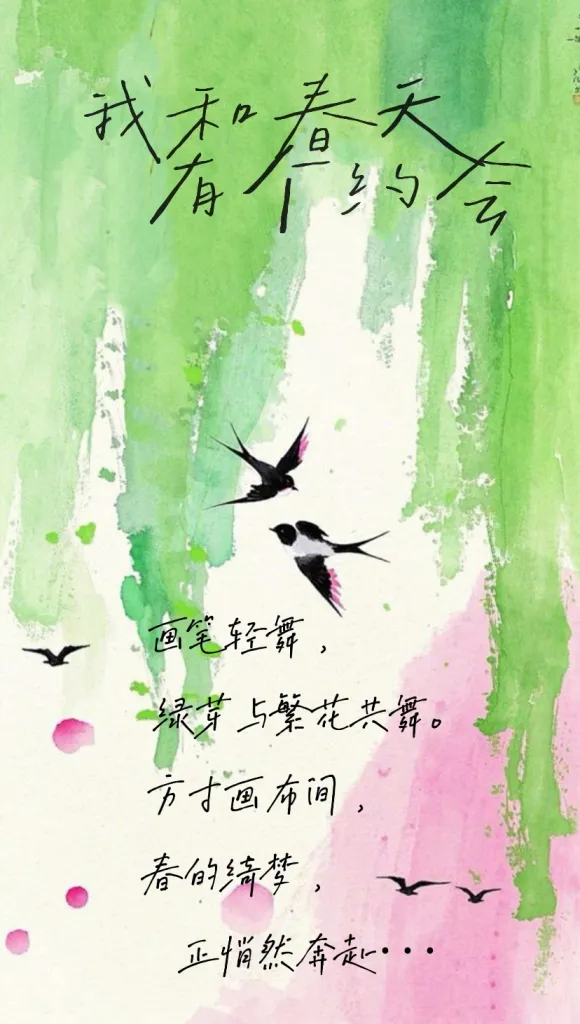 我和春天
有个约会
画笔轻舞，
绿芽与繁花共舞。
方寸画布间，
春的绮梦，
正悄然奔赴···